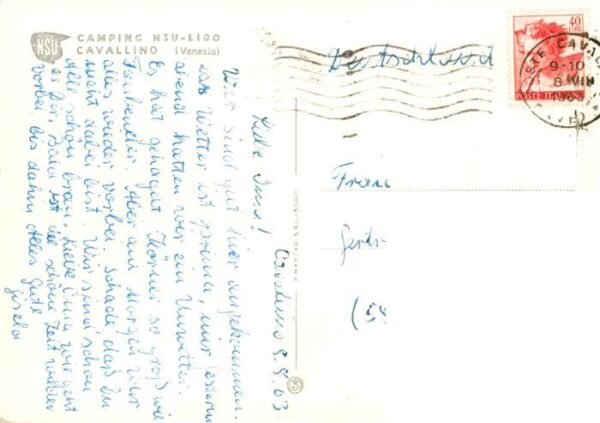 NSU
CAMPING NSU-LIDO
CAVALLINO (Venezia)
Cavallino 8.8.63
Liebe Irma!
Wir sind gut hier angekommen,
das Wetter ist prima, nur gestern
abend hatten wir ein Unwetter.
Es hat gehagelt Körner so groß wie
Aber am Morgen war
alles wieder vorbei. Schade, daß Du
nicht dabei bist. Wir sind schon
alle schön braun. Liebe Irma wie geht
es Dir. Bald ist die schöne Zeit wieder
vorbei, bis dahin Alles Gute
Gisela
Deutschland
40
LIRE
POSTE ITALIANE
9-10
1963
Frau
Gertr
(54